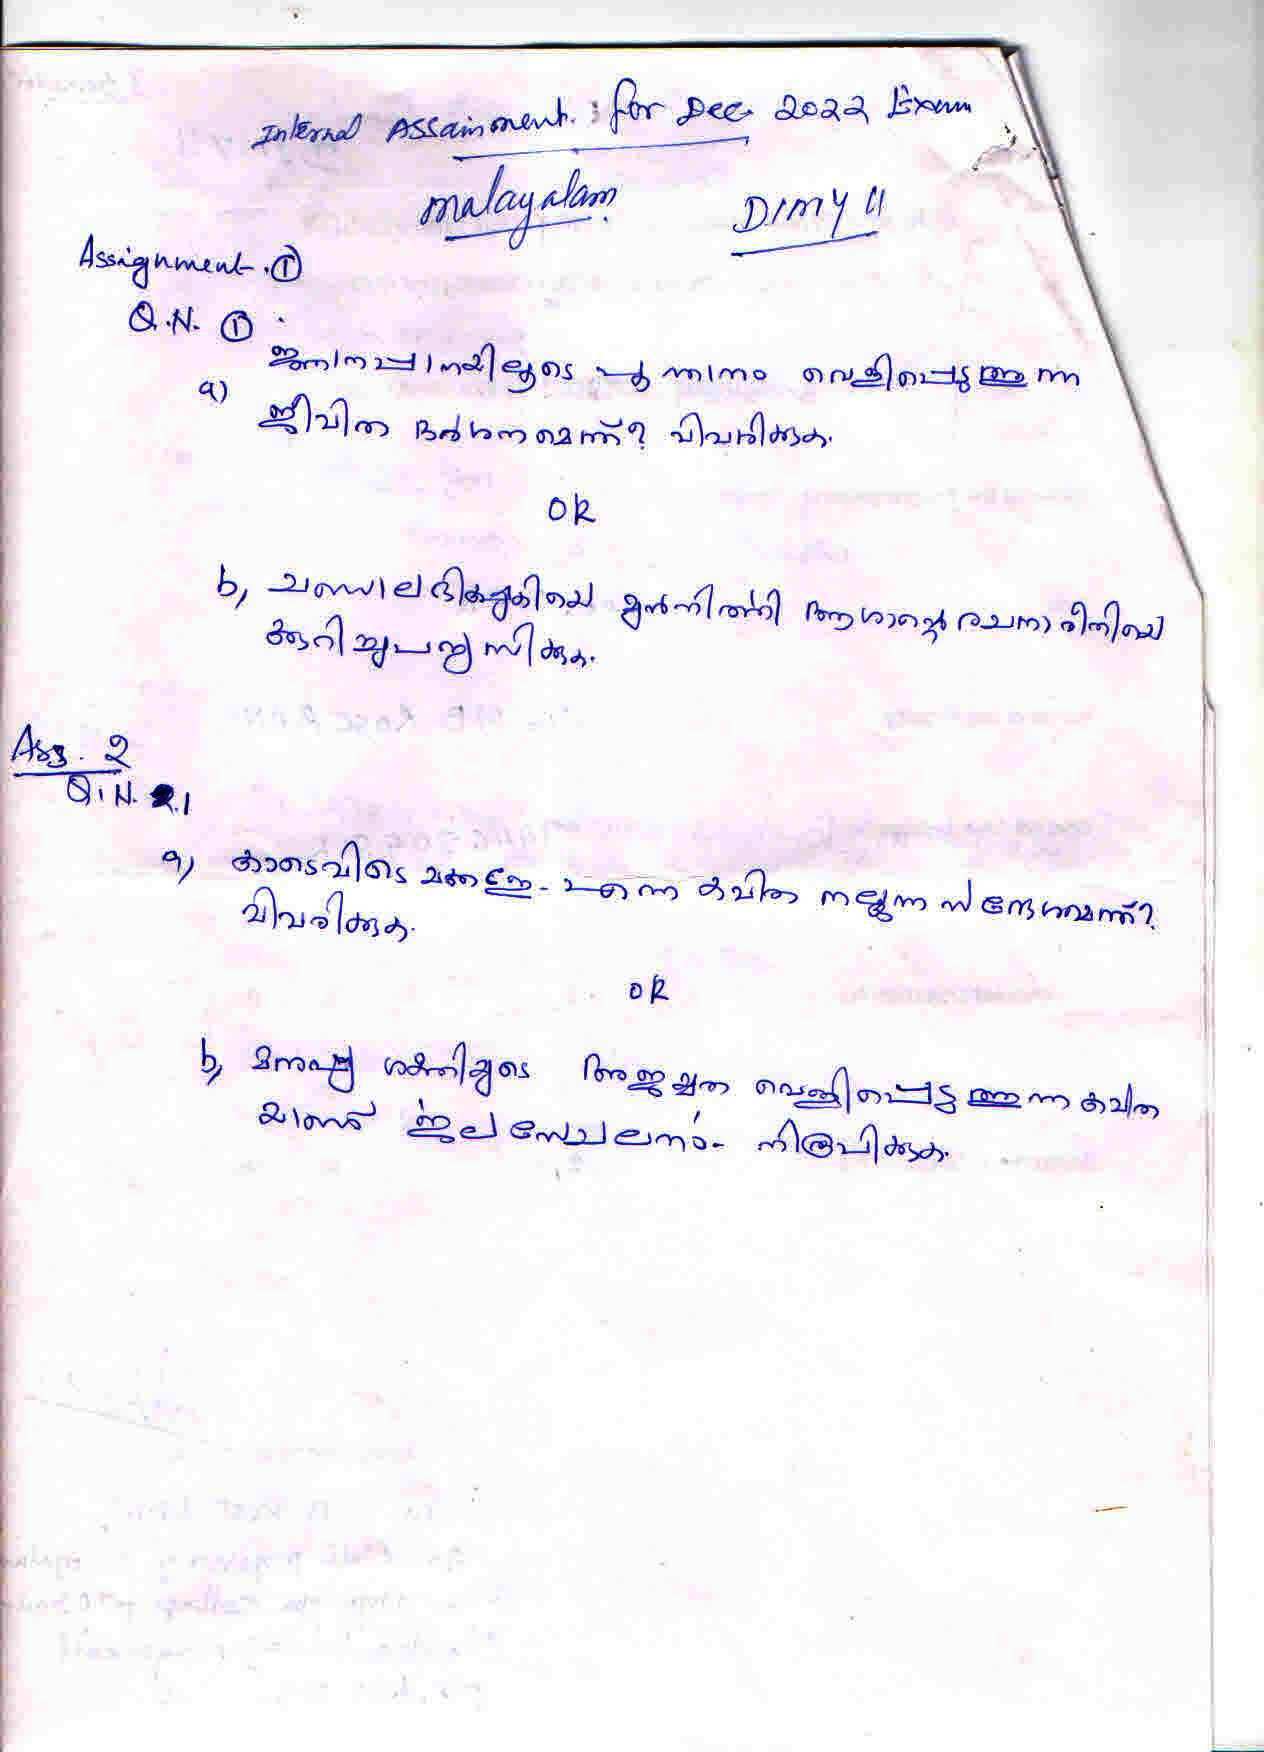 Internal Assainment : for Dec 2022 Exam
Malayalam DIMY 11
Assignment . ①
Q.N. ①
a) ജ്ഞാനപ്പാനയിലൂടെ പൂന്താനം വെളിപ്പെടുത്തുന്ന
ജീവിത ദർശനമെന്ത്? വിവരിക്കുക.
OR
b, ചണ്ഡാലഭിക്ഷുകിയെ മുൻനിർത്തി ആശാന്റെ രചനാരീതിയെ
ക്കുറിച്ചുപന്യസിക്കുക.
Ass. 2
Q.N. 2.1
a) കാടെവിടെ മക്കളേ - എന്ന കവിത നല്കുന്ന സന്ദേശമെന്ത്?
വിവരിക്കുക.
OR
b, മനുഷ്യ ശക്തിയുടെ അജയ്യത വെളിപ്പെടുത്തുന്ന കവിത
യാണ് ജലസേചനം - നിരൂപിക്കുക.